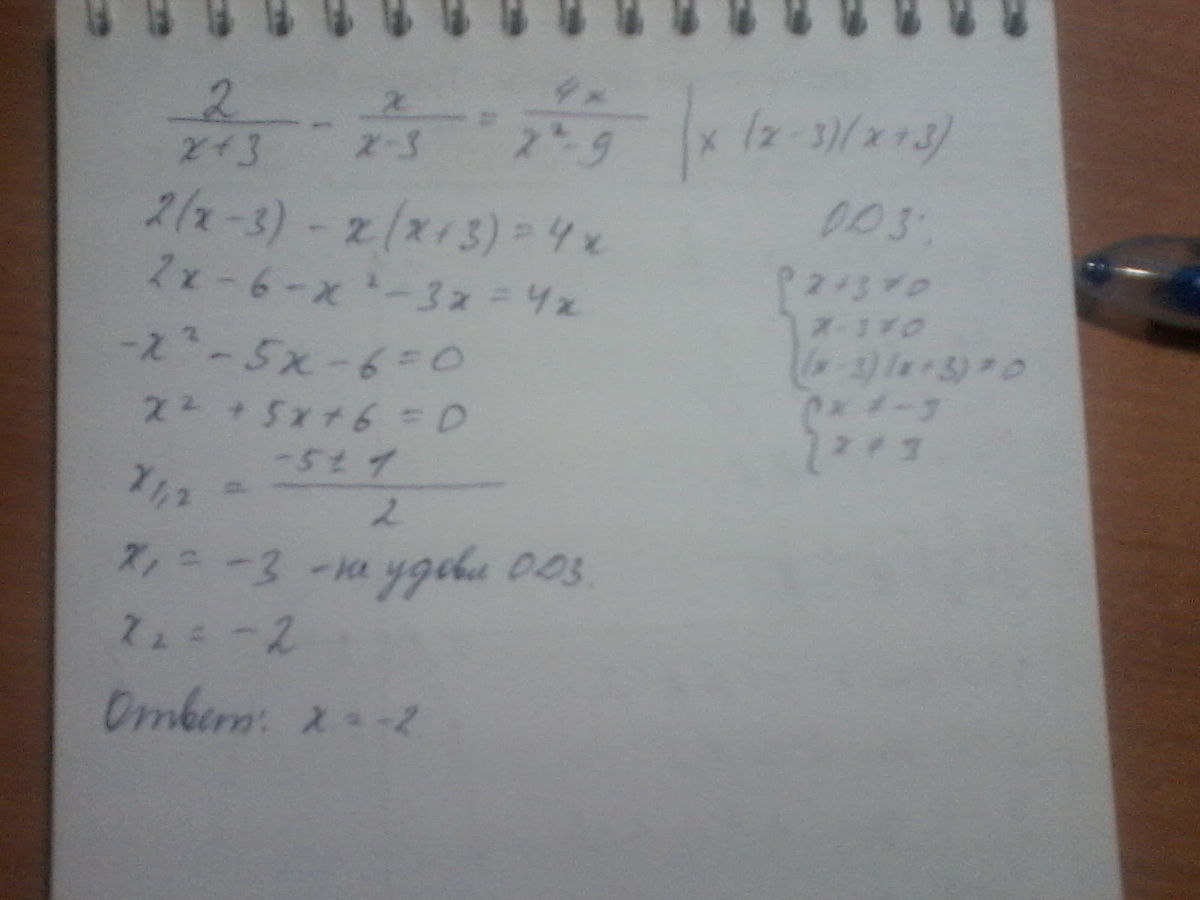 2/(x+3) - x/(x-3) = 4x/(x²-9) | × (x-3)(x+3)
2(x-3) - x(x+3) = 4x
2x - 6 - x² - 3x = 4x
-x² - 5x - 6 = 0
x² + 5x + 6 = 0
x₁,₂ = (-5 ± 1)/2
x₁ = -3 - не удовл ОДЗ.
x₂ = -2
Ответ: x = -2
ОДЗ:
{ x+3 ≠ 0
x-3 ≠ 0
(x-3)(x+3) ≠ 0
{ x ≠ -3
x ≠ 3